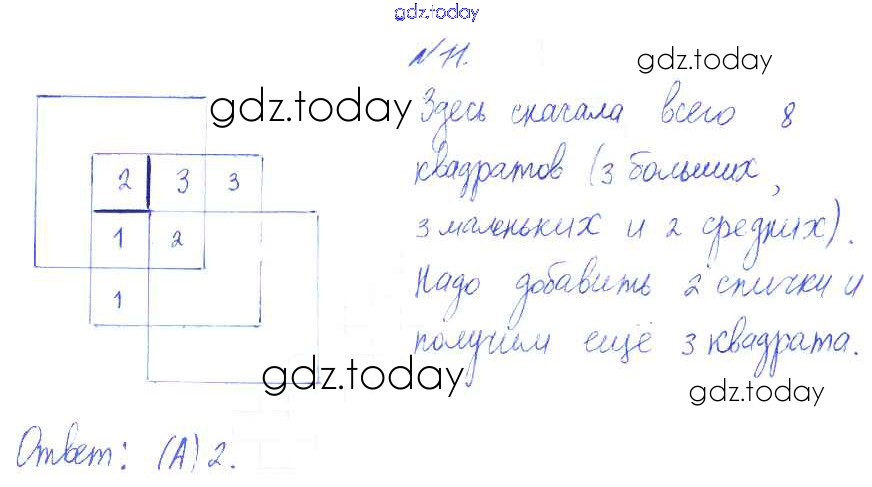 gdz.today
N 11.
gdz.today
gdz.today
Здесь сначала всего 8
квадратов (3 больших,
3 маленьких и 2 средних).
Надо добавить 2 спички и
получим ещё 3 квадрата.
2 3 3
1 2
1
gdz.today
gdz.today
Ответ: (А) 2.